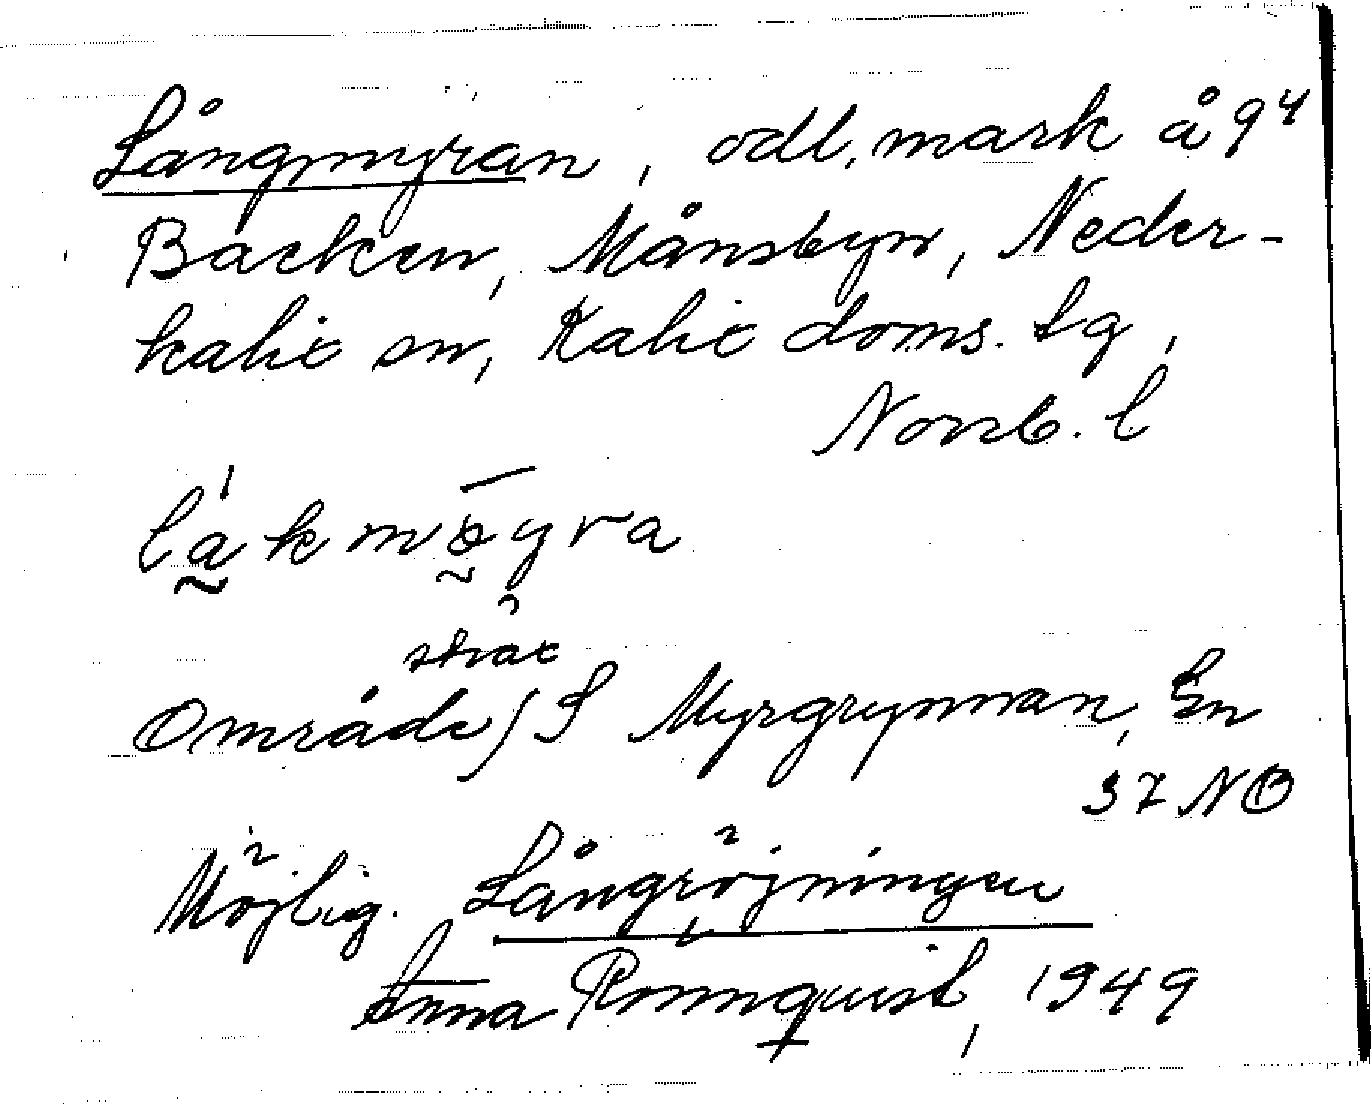 Långmyran, odl. mark å 9⁴
Backen, Månsbyn, Neder-
kalix sn, Kalix doms. lg,
Norrb. l
strax
Område S Myrgrynnan, En
37 NO
Möjlig. Långröjningen
Anna Rönnquist, 1949